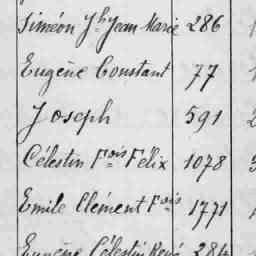 Siméon Jh Jean Marie 286
Eugène Constant 77
Joseph 591
Célestin Fois Félix 1078
Emile Clément Fois 1771
Eugène Célestin René 284